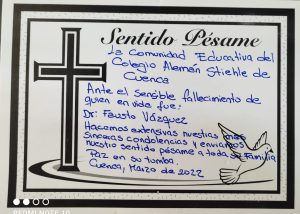 Sentido Pésame
La Comunidad Educativa del
Colegio Alemán Stiehle de
Cuenca
Ante el sensible fallecimiento de
quien en vida fue:
Dr. Fausto Vázquez
Hacemos extensivas nuestras
Sinceras condolencias y enviamos
nuestro sentido pésame a toda su Familia
Paz en su tumba.
Cuenca, Marzo de 2022